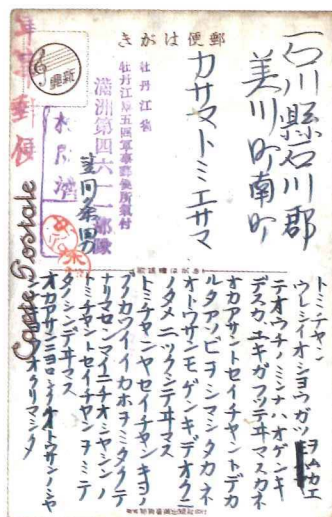 郵便はがき
年賀郵便
石川縣石川郡
美川町南町
カサマトミエサマ
牡丹江省
牡丹江第五區軍事郵便所氣付
滿洲第四六一一部隊
笠间
Carte Postale
トミチヤン
ウレシイオシヨウガツヲムカエ
テオウチノミンナハオゲンキ
デスカユキガフツテヰマスカネ
オカアサントセイチヤントデカ
ルタアソビヲシマシタカネ
オトウサンモゲンキデオクニ
ノタメニツクシテヰマス
トミチヤンヤセイチヤンキヨノ
アノカワイイカホヲミタクテ
ナリマセンマイニチオシヤシンノ
トミチヤントセイチヤンヲミテ
タノシンデヰマス
オカアサンニヨロシクオトウサンノシヤ
シンオクリマシタ